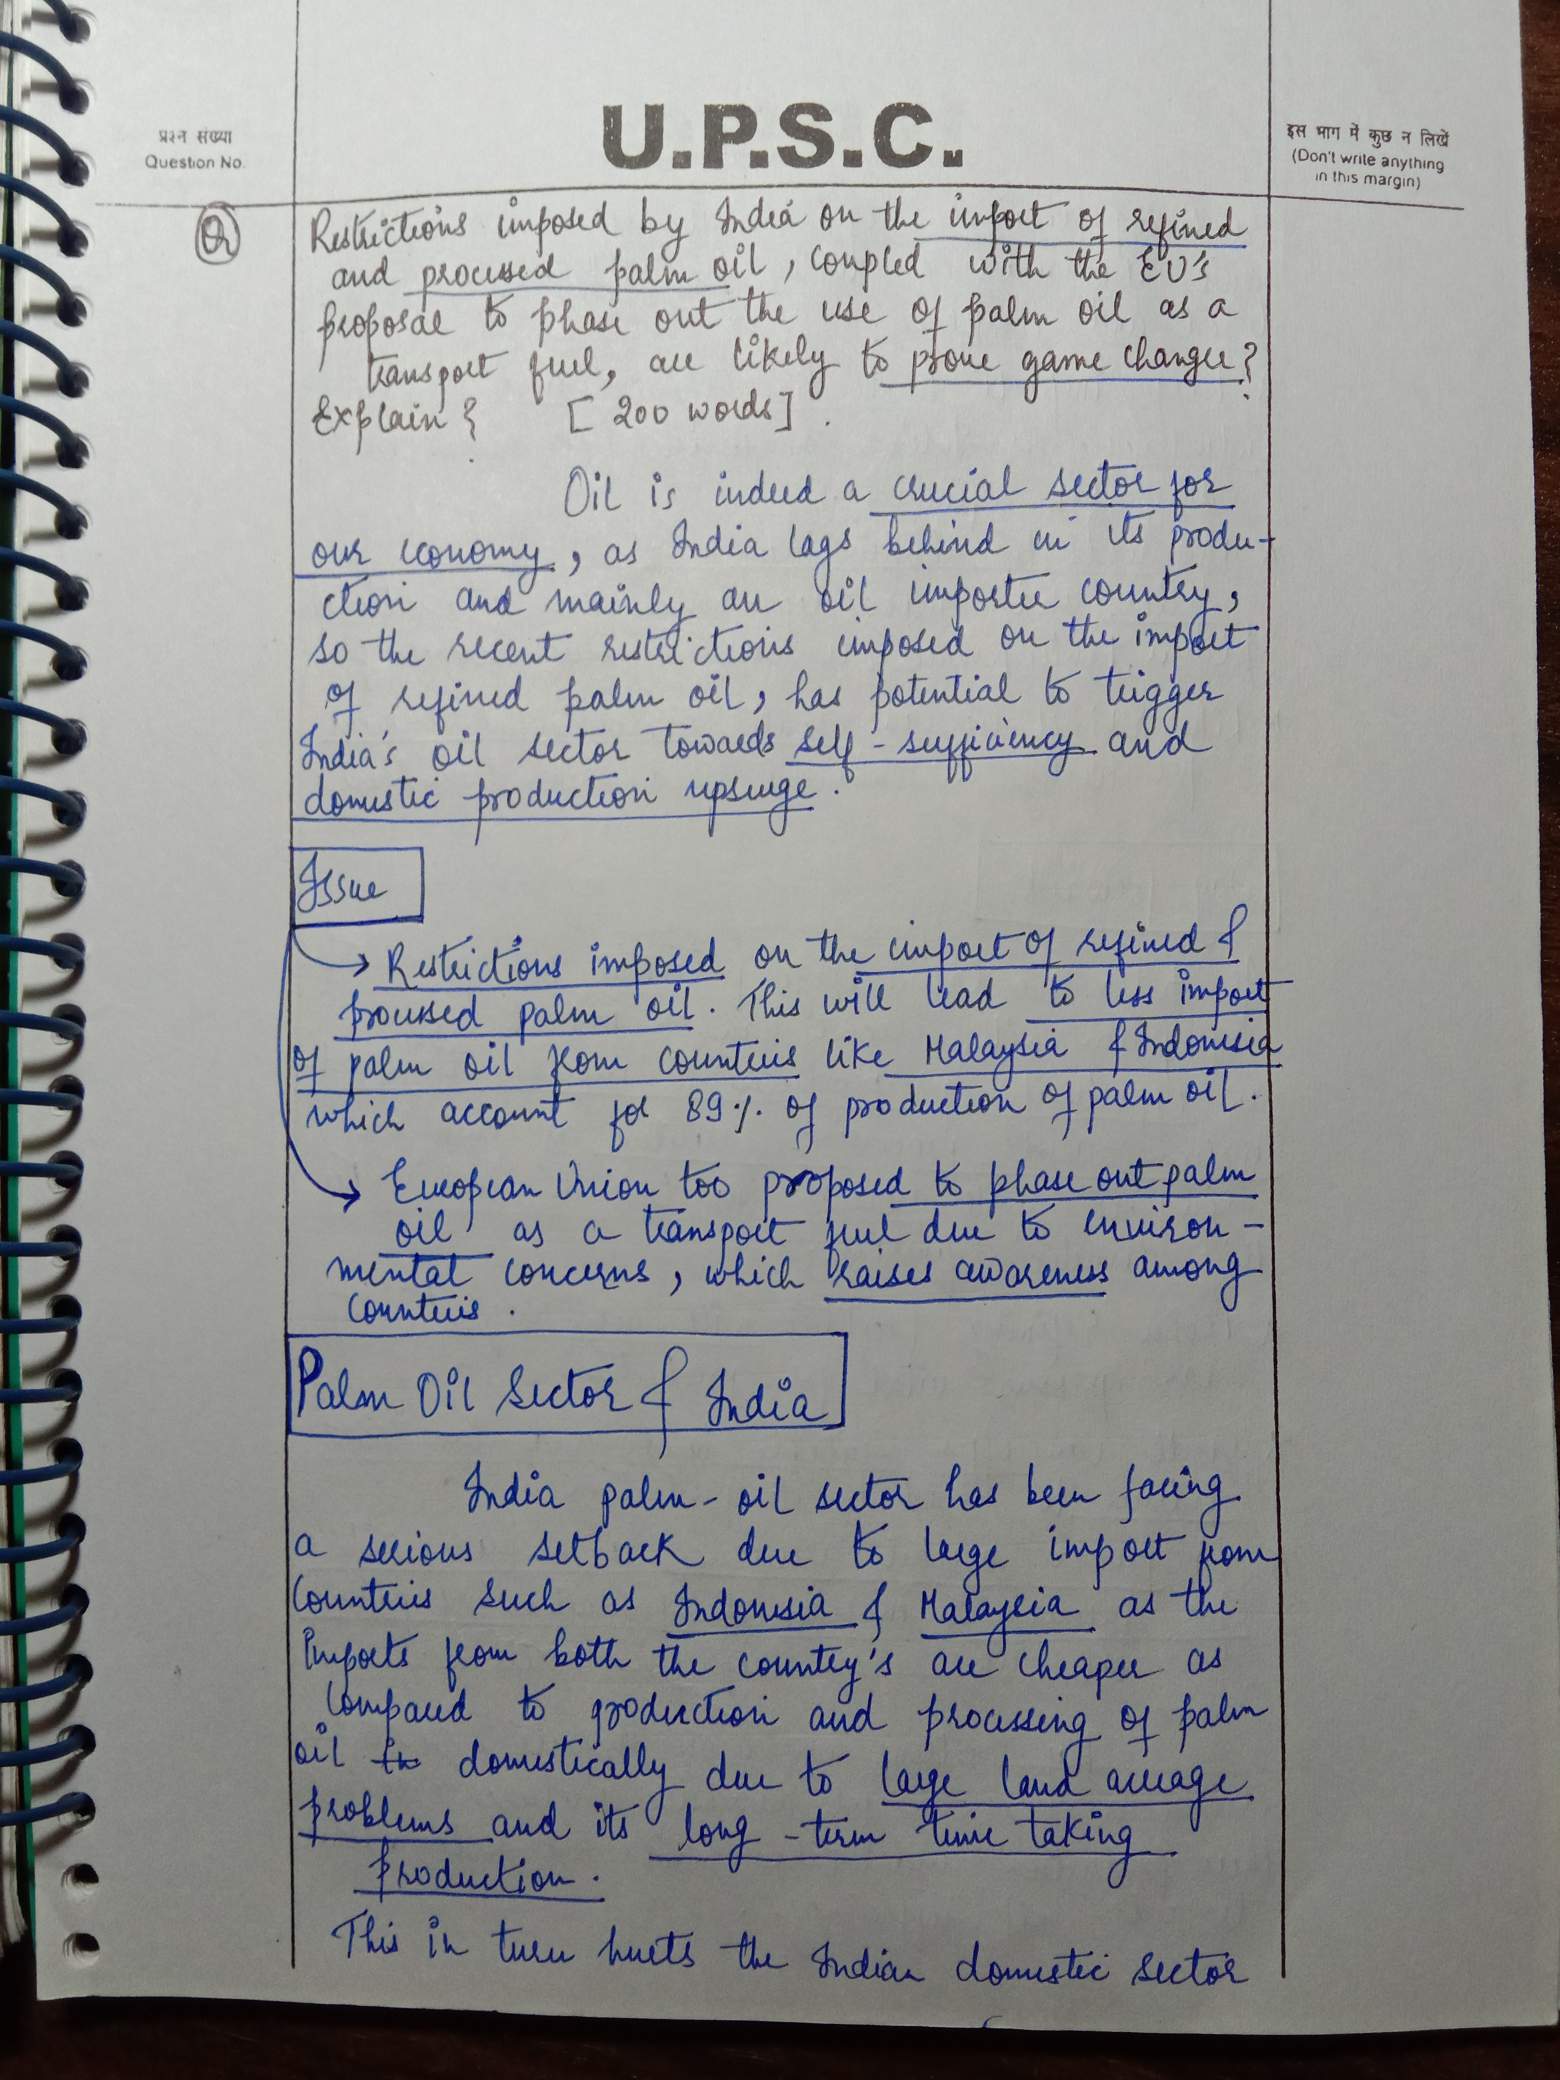 प्रश्न संख्या
Question No.
U.P.S.C.
इस भाग में कुछ न लिखें
(Don't write anything
in this margin)
Q
Restrictions imposed by India on the import of refined
and processed palm oil, coupled with the EU's
proposal to phase out the use of palm oil as a
transport fuel, are likely to prove game changer?
Explain? [200 words].
Oil is indeed a crucial sector for
our economy, as India lags behind in its produ-
ction and mainly an oil importer country,
so the recent restrictions imposed on the import
of refined palm oil, has potential to trigger
India's oil sector towards self-sufficiency and
domestic production upsurge.
Issue
→ Restrictions imposed on the import of refined &
processed palm oil. This will lead to less import
of palm oil from countries like Malaysia & Indonesia
which account for 89% of production of palm oil.
→ European Union too proposed to phase out palm
oil as a transport fuel due to environ-
mental concerns, which raises awareness among
countries.
Palm Oil Sector & India
India palm-oil sector has been facing
a serious setback due to large import from
Countries such as Indonesia & Malaysia as the
Imports from both the country's are cheaper as
compared to production and processing of palm
oil domestically due to large land acreage
problems and its long-term time taking
production.
This in turn hurts the Indian domestic sector